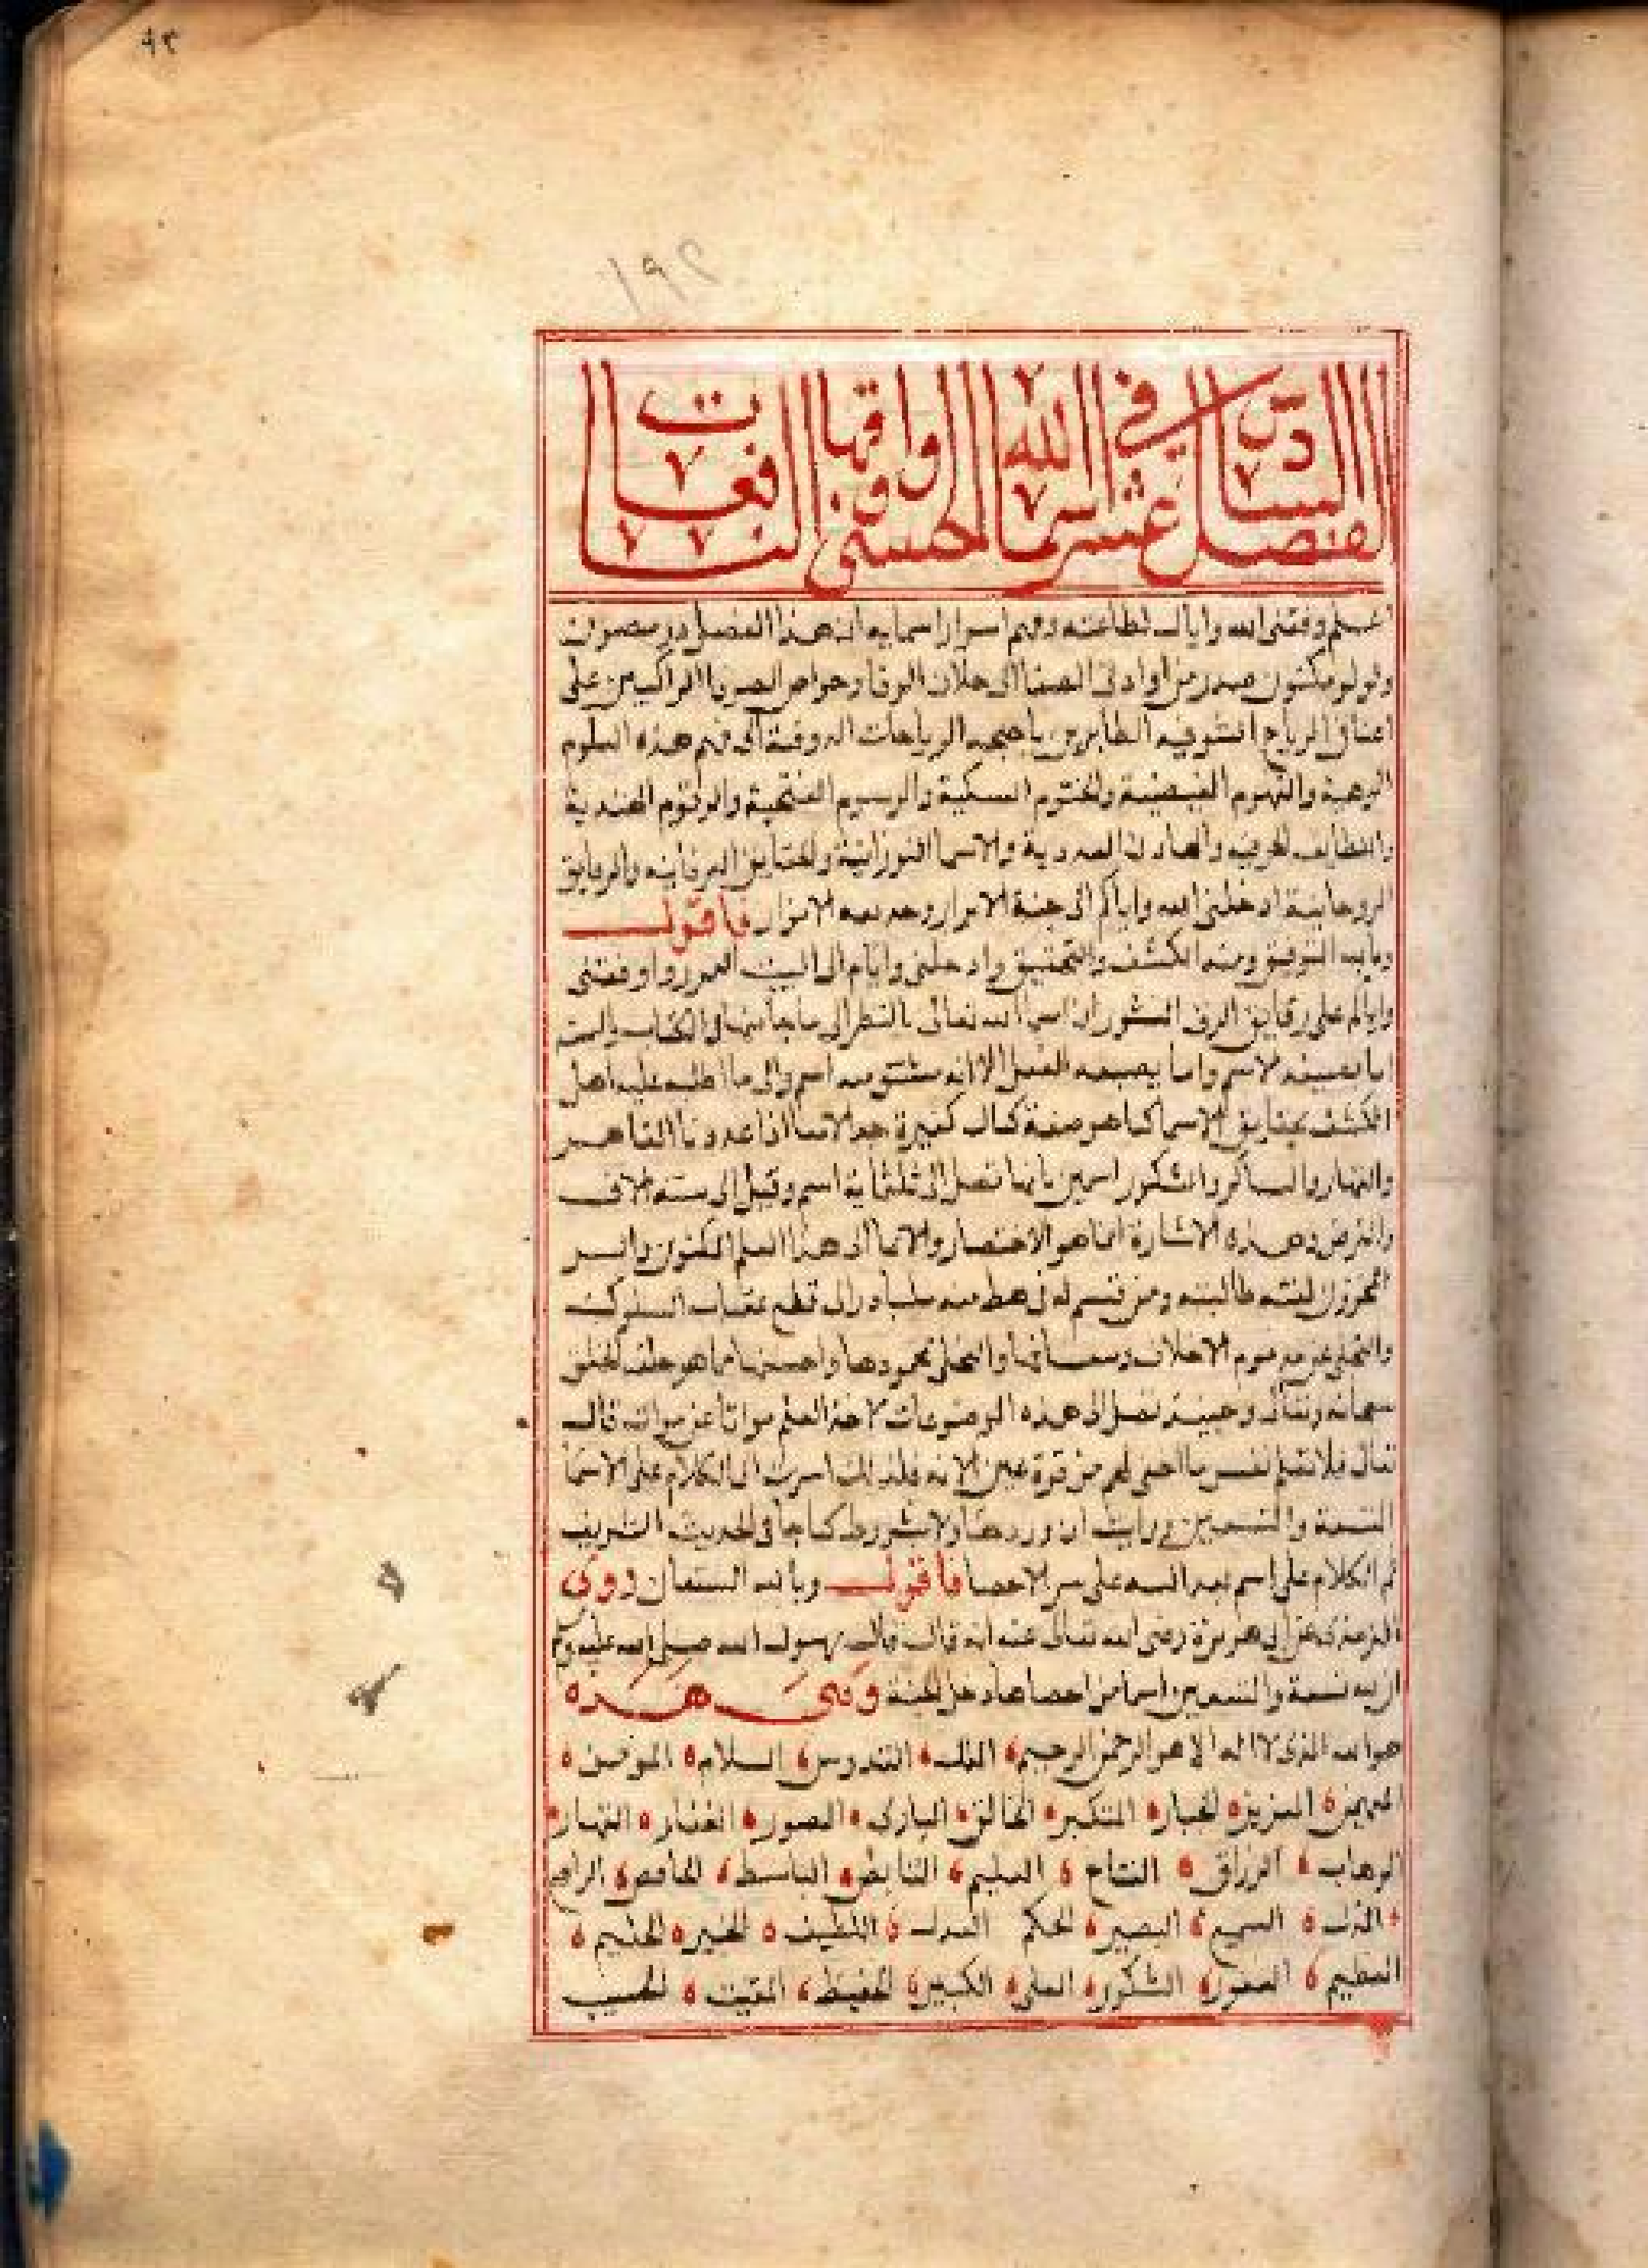 ٩٣
الفصل السادس عشر في اسما الله الحسنى واوفاقها النافعات
اعلم وفقني الله واياك لطاعته وفهم اسرار اسمايه ان هذا الفصل در مصون
ولولو مكنون صدر من
اعناق الرياح الشوقيه الطايرين باجنحه الرياضات الذوقية الى فهم هذه العلوم
الوهبية والفهوم الفيضية والختوم المسكية والرسوم الفتحية والرقوم الهندية
واللطايف الحرفيه والمعادن العددية والاسما النورانية والحقايق العرفانيه والرقايق
الروحانية ادخلني الله واياكم الى جنة الابرار فاقول
وبالله التوفيق ومنه الكشف والتحقيق وادخلني واياكم الى البيت المعمور واوقفني
واياكم على رقايق الرق المنشور ان اسما الله تعالى بالنظر الى ما جا منها في الكتاب والسنه
اما بصيغه الاسم واما بصيغه الفعل الا انه مشتق منه اسم والى ما اطلع عليه اهل
الكشف بحقايق الاسما كما هو صفة كمال كثيرة جدا لاسيما اذا عددنا القاهر
والقهار والشاكر والشكور اسمين فانها تصل الى ثلثماية اسم وقيل الى ستة الاف
والغرض هذه الاشارة انما هو الاختصار والايما الى هذا العلم المكنون والسر
المخزون لتنتبه طالبيه ومن قسم له في حظ منه فليبادر الى قطع عقبات السلوك
والتخلي عن مذموم الاخلاق والتحلي بمحمودها واحسنها مما هو خلق للحق
سبحانه وتعالى وحينيذ تصل الى هذه الموضوعات قال
تعالى فلا تعلم نفس ما اخفي لهم من قرة اعين الايه فلذلك اسرعت الى الكلام على الاسما
التسعة والتسعين ورايت ان اوردها كما جا في الحديث الشريف
ثم الكلام على اسم بعد اسم على سر الاحصا فاقول وبالله المستعان روى
الترمذي عن ابي هريرة رضي الله تعالى عنه انه قال قال رسول الله صلى الله عليه وسلم
ان لله تسعة والتسعين اسما من احصاها دخل الجنة وهي هذه
هو الله الذي لا اله الا هو الرحمن الرحيم الملك القدوس السلام المومن
المهيمن العزيز الجبار المتكبر الخالق الباري المصور الغفار القهار
الوهاب الرزاق الفتاح العليم القابض الباسط الخافض الرافع
المذل السميع البصير الحكم العدل اللطيف الخبير الحليم
العظيم الغفور الشكور العلي الكبير الحفيظ المقيت الحسيب